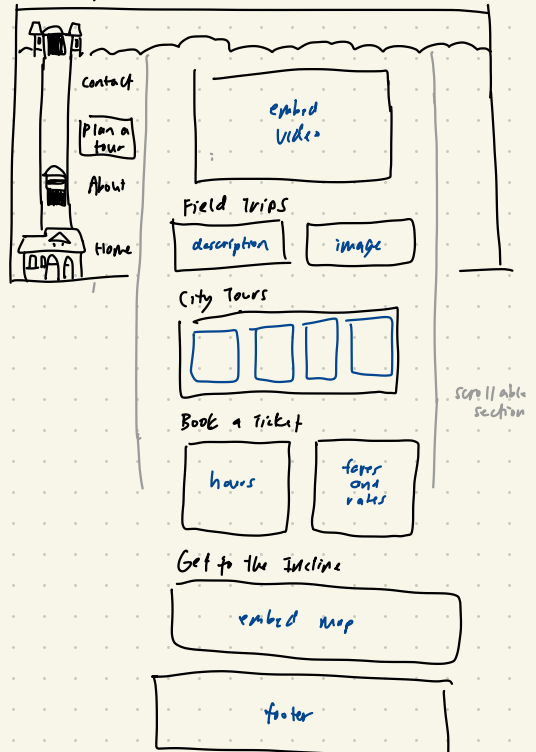 Contact
Plan a
tour
About
Home
embed
video
Field Trips
description
image
City Tours
scrollable
section
Book a Ticket
hours
fares
and
rates
Get to the Incline
embed map
footer